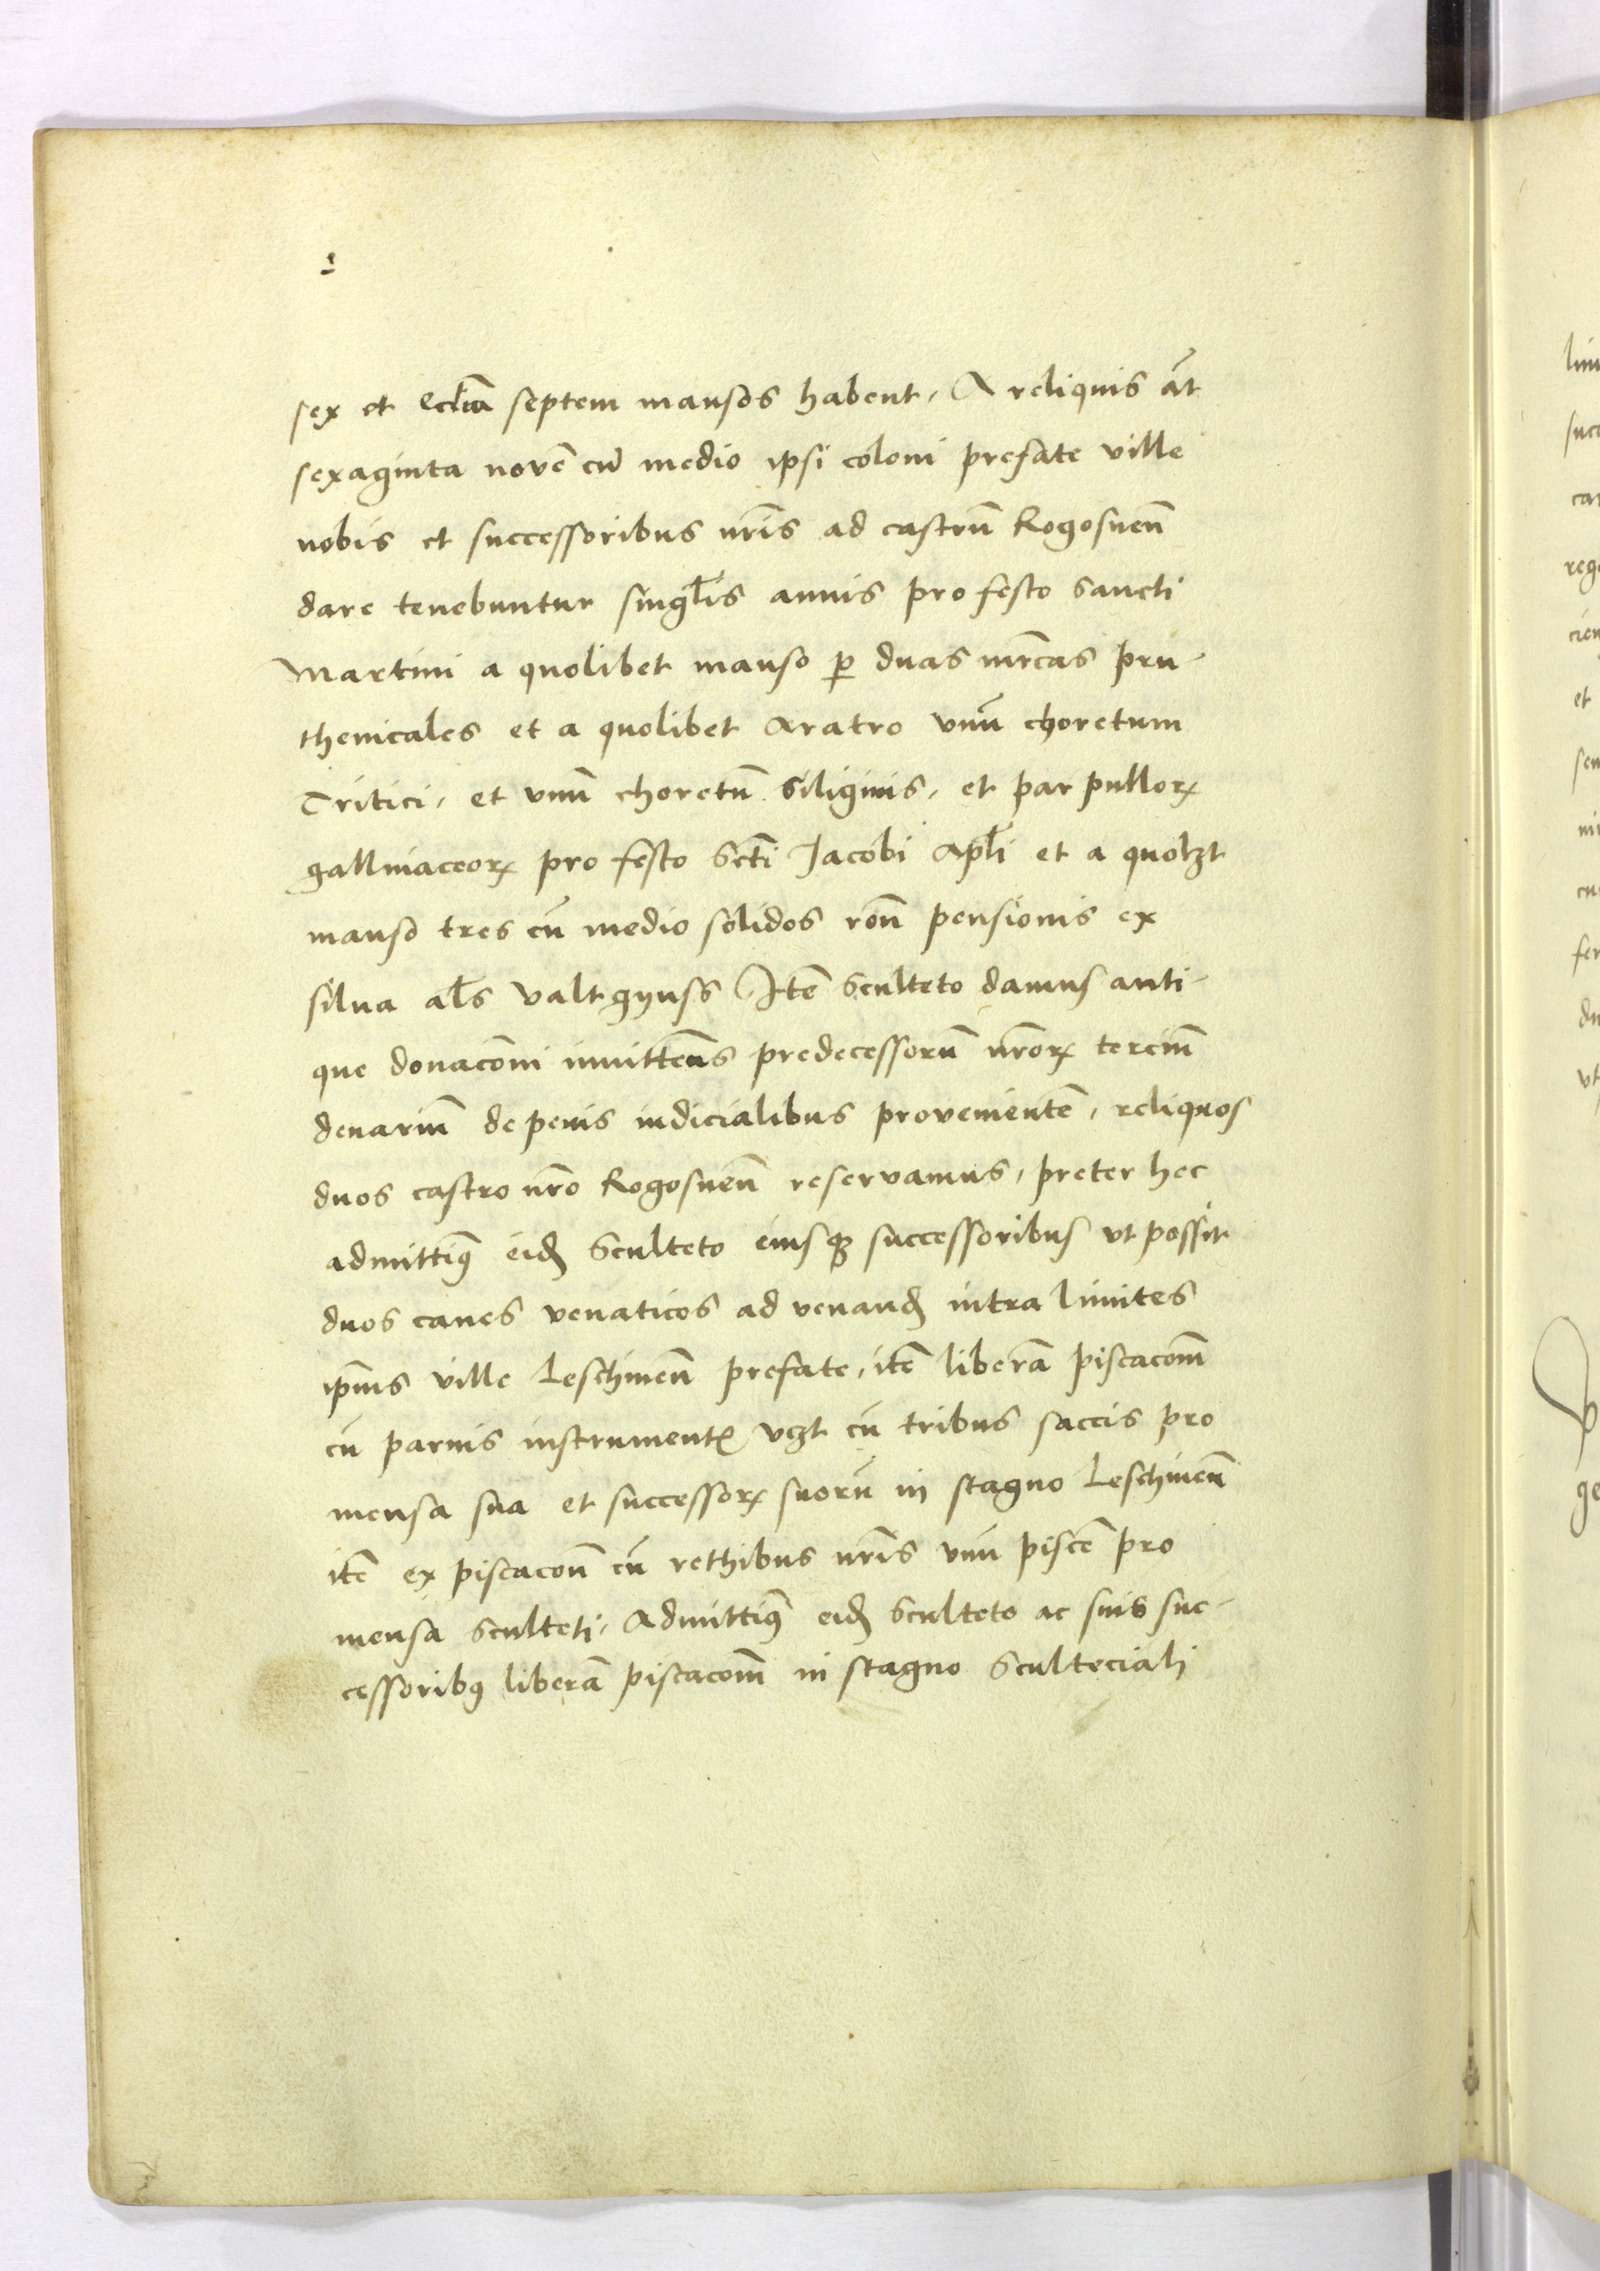 sex et Ecl̃ia septem mansos habent. A reliquis at̃
sexaginta novẽ cũ medio ipsi coloni prefate ville
nobis et successoribus nr̃is ad castrũ Rogosneñ
dare tenebuntur singl̃is annis pro festo Sancti
Martini a quolibet manso ꝑ duas mr̃cas pru-
thenicales et a quolibet Aratro vnũ choretum
Tritici, et vnũ choretũ Siliginis, et par pulloꝝ
gallinaceoꝝ pro festo Sct̃i Jacobi Apl̃i et a quolꝫt
manso tres cũ medio solidos rõne pensionis ex
silua al̃s Valtgynss Itẽ Sculteto damus anti-
que donacõni inniteñs predecessorũ nr̃oꝝ terciũ
denariũ de penis iudicialibus provenientẽ, reliquos
duos castro nr̃o Rogosneñ reservamus, preter hec
admittimꝰ eidẽ Sculteto eiusqꝫ successoribus vt possit
duos canes venaticos ad venandũ intra limites
ip̃ius ville Leschineñ prefate, itẽ liberã piscacõm̃
cũ paruis instrumentꝭ vꝫt cũ tribus saccis pro
mensa sua et successoꝝ suorũ in stagno Leschineñ
itẽ ex piscacõne cũ rethibus nr̃is vnũ piscẽ pro
mensa Sculteti. Admittimꝰ eidẽ Sculteto ac suis suc-
cessoribꝰ liberã piscacõm̃ in stagno Sculteciali